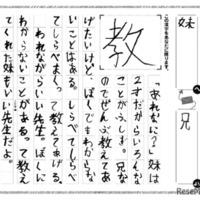 妹
へ
兄
この漢字をあなたに贈ります。
教
「あれなに?」妹は
2才だからいろんな
ことがふしぎ。兄な
のでぜんぶ教えてあ
げたいけど、ぼくでもわからな
いことはある。しらべてしらべ
てしらべまくって、教えてあげる。
われながらいい先生。ぼくに
わからないことがある、って教え
てくれた妹もいい先生だよ。